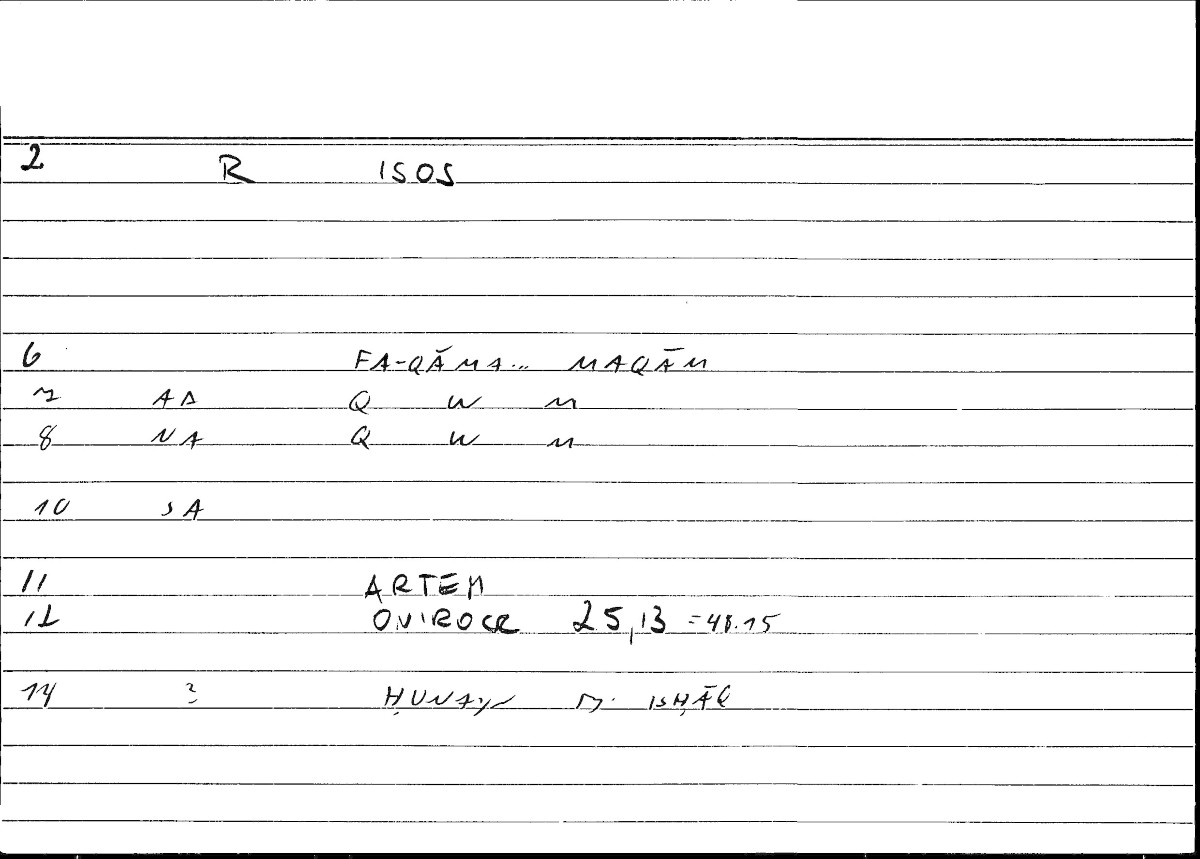 2 R ISOS
6 FA-QĀMA... MAQĀM
7 AA Q W M
8 NA Q W M
10 SA
11 ARTEM
12 ONIROCR 25,13 =48.15
14 ? ḤUNAYN b. ISḤĀQ